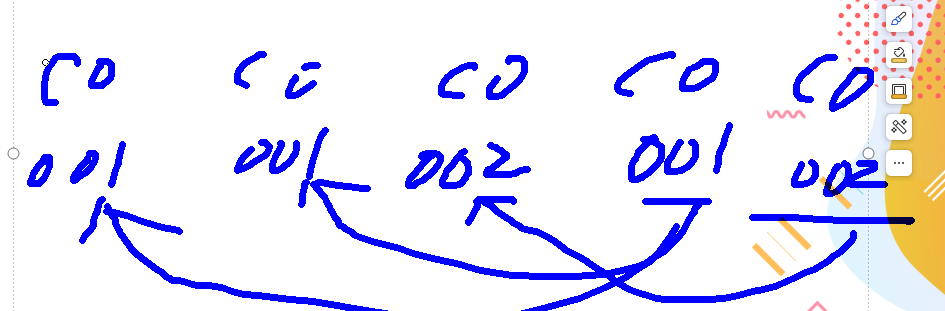 CO CO CO CO CO
001 001 002 001 002